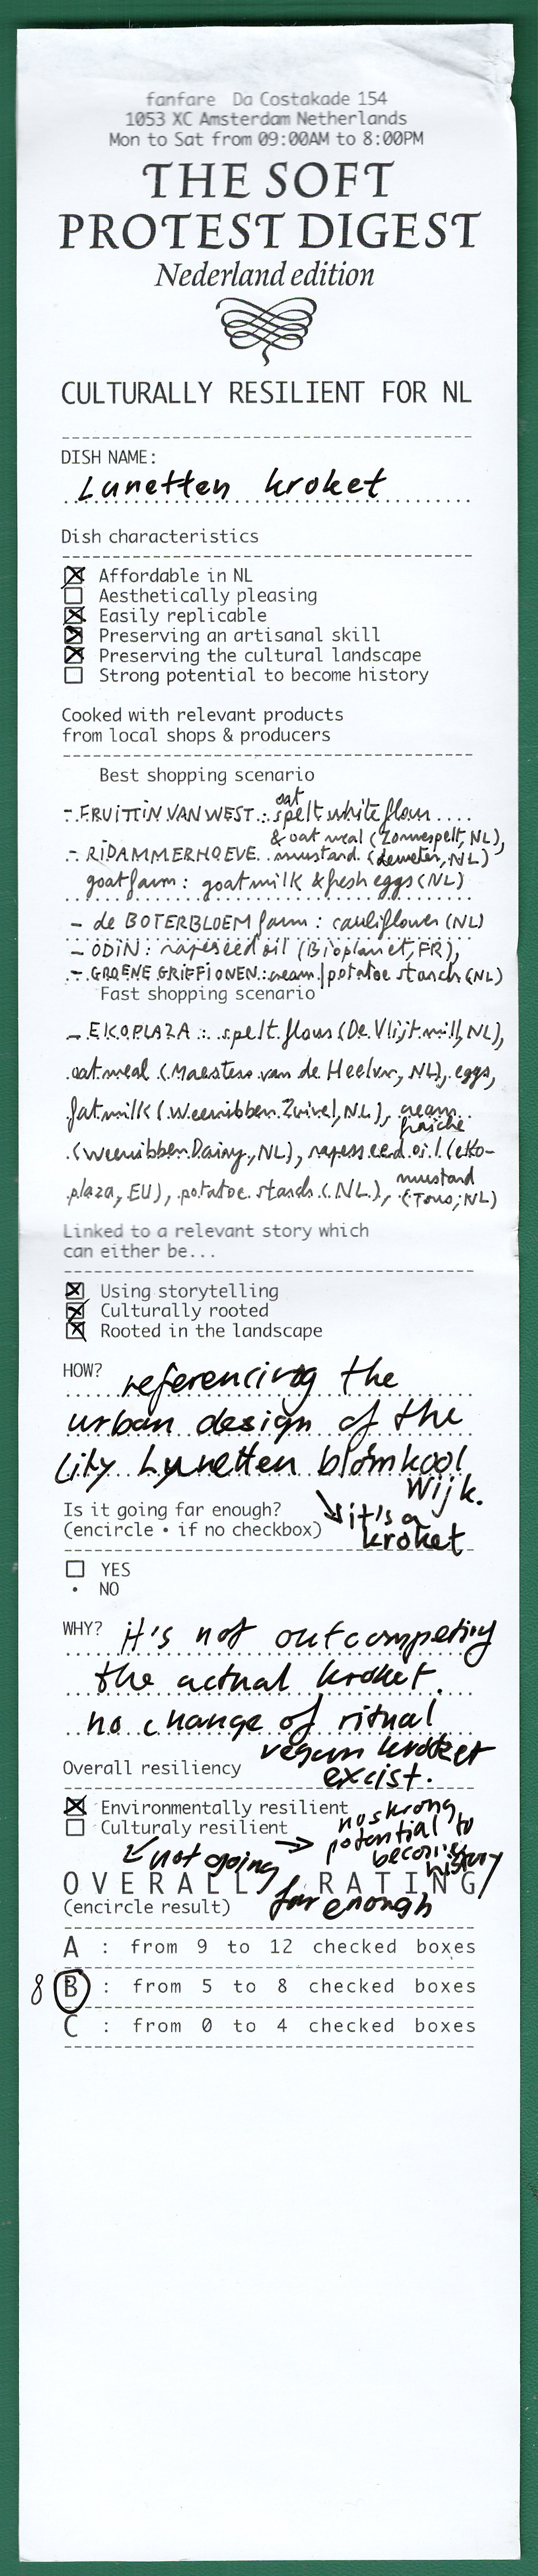 fanfare Da Costakade 154
1053 XC Amsterdam Netherlands
Mon to Sat from 09:00AM to 8:00PM
THE SOFT
PROTEST DIGEST
Nederland edition
CULTURALLY RESILIENT FOR NL
DISH NAME:
Lunetten kroket
Dish characteristics
☒ Affordable in NL
☐ Aesthetically pleasing
☒ Easily replicable
☒ Preserving an artisanal skill
☒ Preserving the cultural landscape
☐ Strong potential to become history
Cooked with relevant products
from local shops & producers
Best shopping scenario
oat
- FRUITTIN VAN WEST : spelt white flour
& oat meal (Zonnespelt, NL),
- RIDAMMERHOEVE mustard (demeter, NL)
goat farm : goat milk & fresh eggs (NL)
- de BOTERBLOEM farm : cauliflower (NL)
- ODIN : rapeseed oil (Bioplanet, FR),
- GROENE GRIFFIONEN : cream / potatoe starch (NL)
Fast shopping scenario
- EKOPLAZA : spelt flour (De Vlijt mill, NL),
oat meal (Maesters van de Heelvn, NL), eggs,
fat milk (Weerribben Zuivel, NL), cream
fraiche
(Weerribben Dairy, NL), rapesseed oil (eko-
plaza, EU), potatoe starch (NL), mustard
(Tons, NL)
Linked to a relevant story which
can either be...
☒ Using storytelling
☒ Culturally rooted
☒ Rooted in the landscape
HOW? referencing the
urban design of the
city Lunetten blomkool
wijk.
Is it going far enough?
(encircle • if no checkbox) ↘ it's a
kroket
☐ YES
• NO
WHY? it's not outcompeting
the actual kroket.
no change of ritual
vegan kroket
excist.
Overall resiliency
☒ Environmentally resilient
☐ Culturaly resilient
no strong
→ potential to
become history
↙ not going
far enough
OVERALL RATING
(encircle result)
A : from 9 to 12 checked boxes
8 B : from 5 to 8 checked boxes
C : from 0 to 4 checked boxes